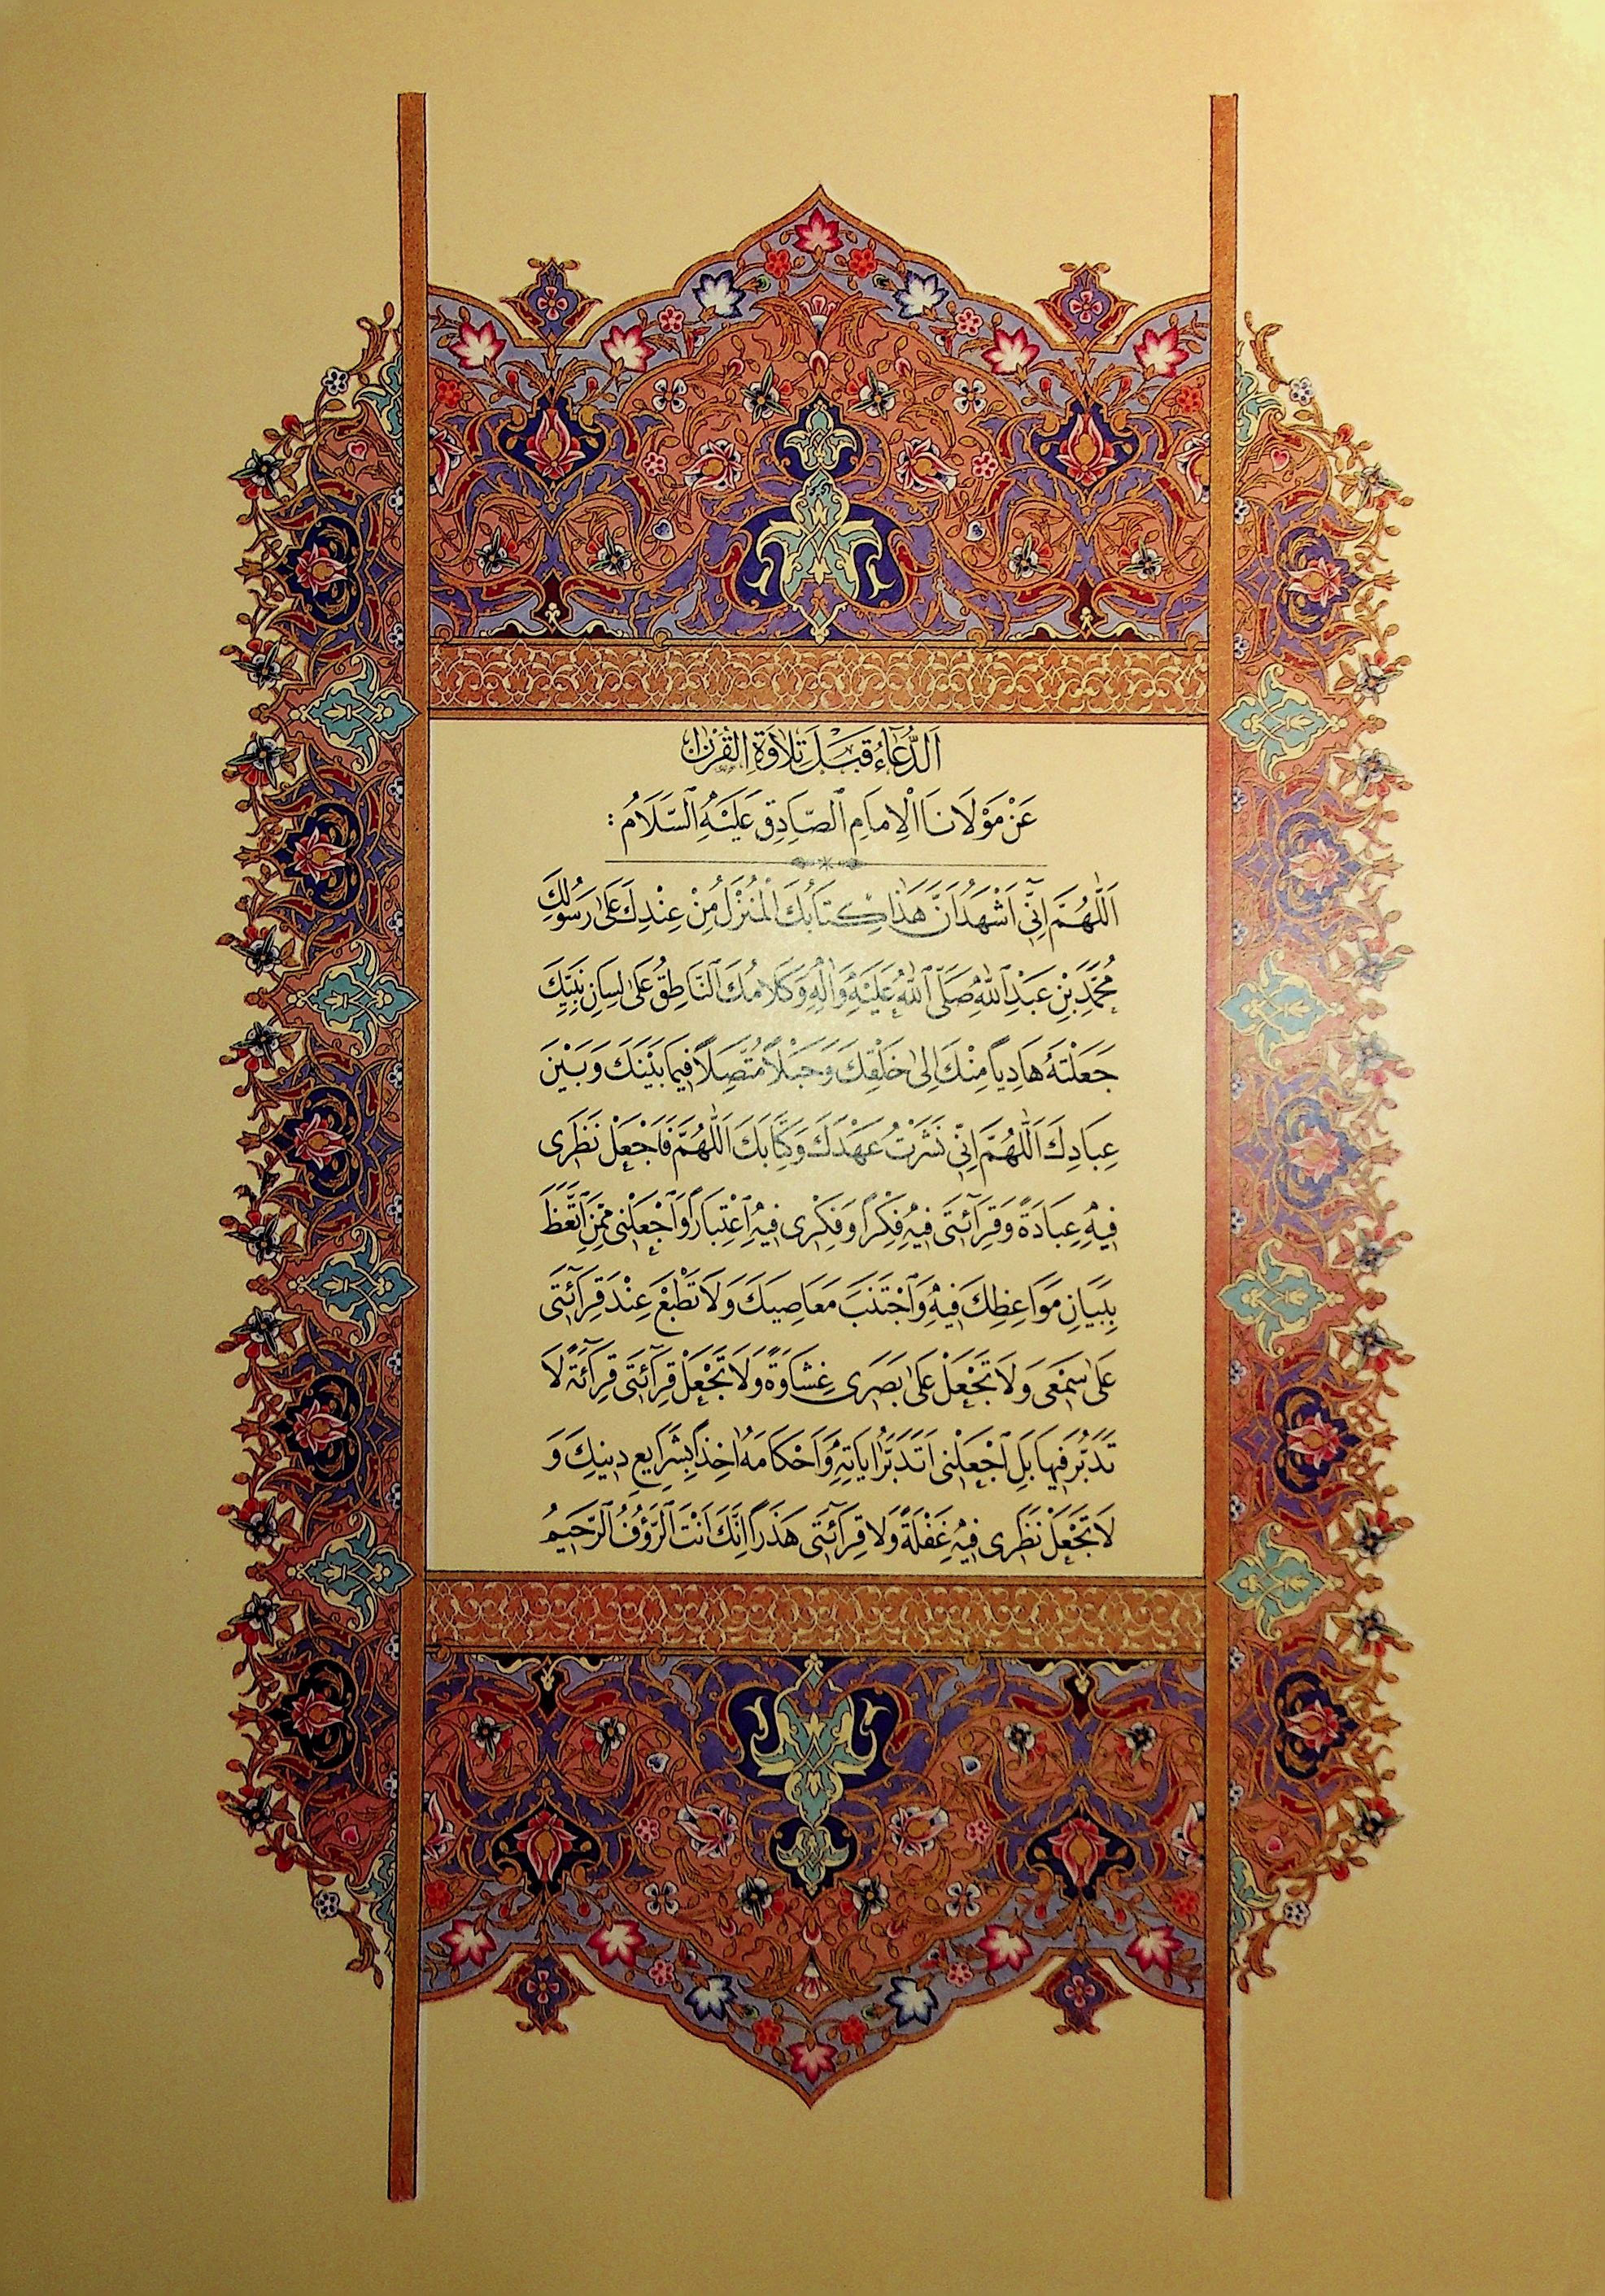 اَلدُّعَآءُ قَبْلَ تِلاوَةِ الْقُرْانِ
عَنْ مَوْلَانَا الْاِمَامِ ٱلصَّادِقِ عَلَيْهِ ٱلسَّلَامُ :
اَللّٰهُمَّ اِنّٖى اَشْهَدُ اَنَّ هٰذَا كِتَابُكَ الْمُنْزَلُ مِنْ عِنْدِكَ عَلٰى رَسُولِكَ
مُحَمَّدِ بْنِ عَبْدِ ٱللّٰهِ صَلَّى ٱللّٰهُ عَلَيْهِ وَاٰلِهِ وَكَلامُكَ ٱلنَّاطِقُ عَلٰى لِسَانِ نَبِيِّكَ
جَعَلْتَهُ هَادِياً مِنْكَ اِلٰى خَلْقِكَ وَحَبْلًا مُتَّصِلًا فٖيمَا بَيْنَكَ وَبَيْنَ
عِبَادِكَ اَللّٰهُمَّ اِنّٖى نَشَرْتُ عَهْدَكَ وَكِتَابَكَ اَللّٰهُمَّ فَاجْعَلْ نَظَرٖى
فٖيهِ عِبَادَةً وَقِرَآئَتٖى فٖيهِ فِكْرًا وَفِكْرٖى فٖيهِ ٱعْتِبَارًا وَٱجْعَلْنٖى مِمَّنِ ٱتَّعَظَ
بِبَيَانِ مَوَاعِظِكَ فٖيهِ وَٱجْتَنَبَ مَعَاصٖيكَ وَلَا تَطْبَعْ عِنْدَ قِرَآئَتٖى
عَلٰى سَمْعٖى وَلَا تَجْعَلْ عَلٰى بَصَرٖى غِشَاوَةً وَلَا تَجْعَلْ قِرَآئَتٖى قِرَآئَةً لَا
تَدَبُّرَ فٖيهَا بَلِ ٱجْعَلْنٖى اَتَدَبَّرُ اٰيَاتِهِ وَاَحْكَامَهُ اٰخِذاً بِشَرَايِعِ دٖينِكَ وَ
لَا تَجْعَلْ نَظَرٖى فٖيهِ غَفْلَةً وَلَا قِرَآئَتٖى هَذَراً اِنَّكَ اَنْتَ ٱلرَّؤُفُ ٱلرَّحٖيمُ